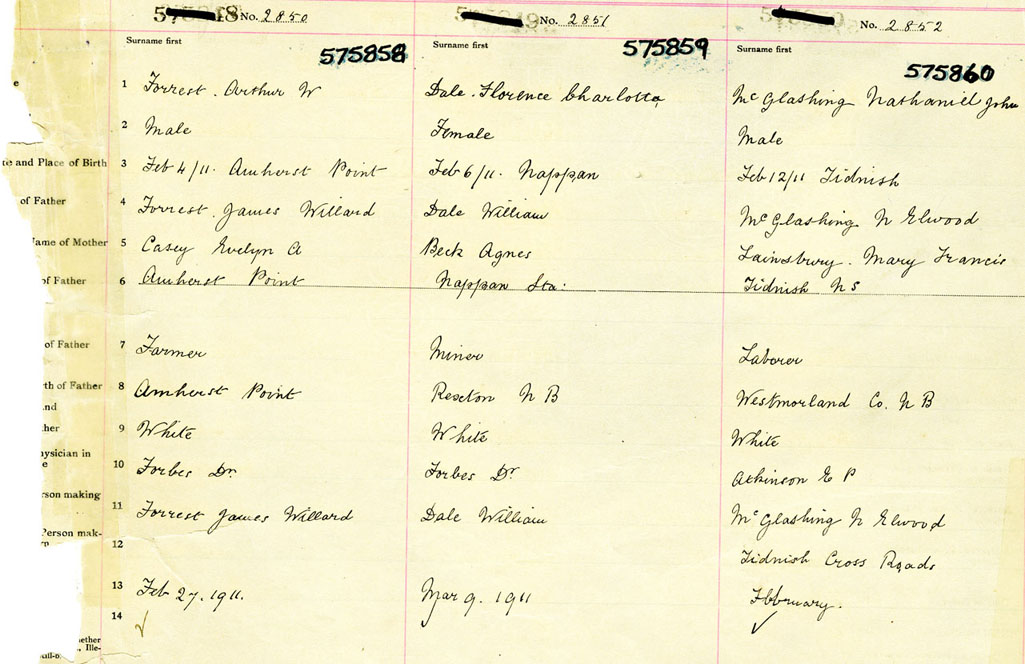 No. 2850
No. 2851
No. 2852
Surname first
Surname first
Surname first
575858
575859
575860
e
1 Forrest. Arthur W
Dale. Florence Charlotte
McGlashing Nathaniel John
2 Male
Female
Male
te and Place of Birth 3 Feb 4/11. Amherst Point
Feb 6/11. Nappan
Feb 12/11 Tidnish
of Father 4 Forrest. James Willard
Dale William
McGlashing N Elwood
Name of Mother 5 Casey Evelyn A
Beck Agnes
Lainsbury. Mary Francis
of Father 6 Amherst Point
Nappan Sta:
Tidnish N S
of Father 7 Farmer
Miner
Laborer
rth of Father 8 Amherst Point
Rexton N B
Westmorland Co. N B
nd
her 9 White
White
White
hysician in
e 10 Forbes Dr.
Forbes Dr.
Atkinson E P
rson making
11 Forrest James Willard
Dale William
McGlashing N Elwood
Person mak-
12
Tidnish Cross Roads
13 Feb 27. 1911.
Mar 9. 1911
February.
14 ✓
✓
ether
., Ille-